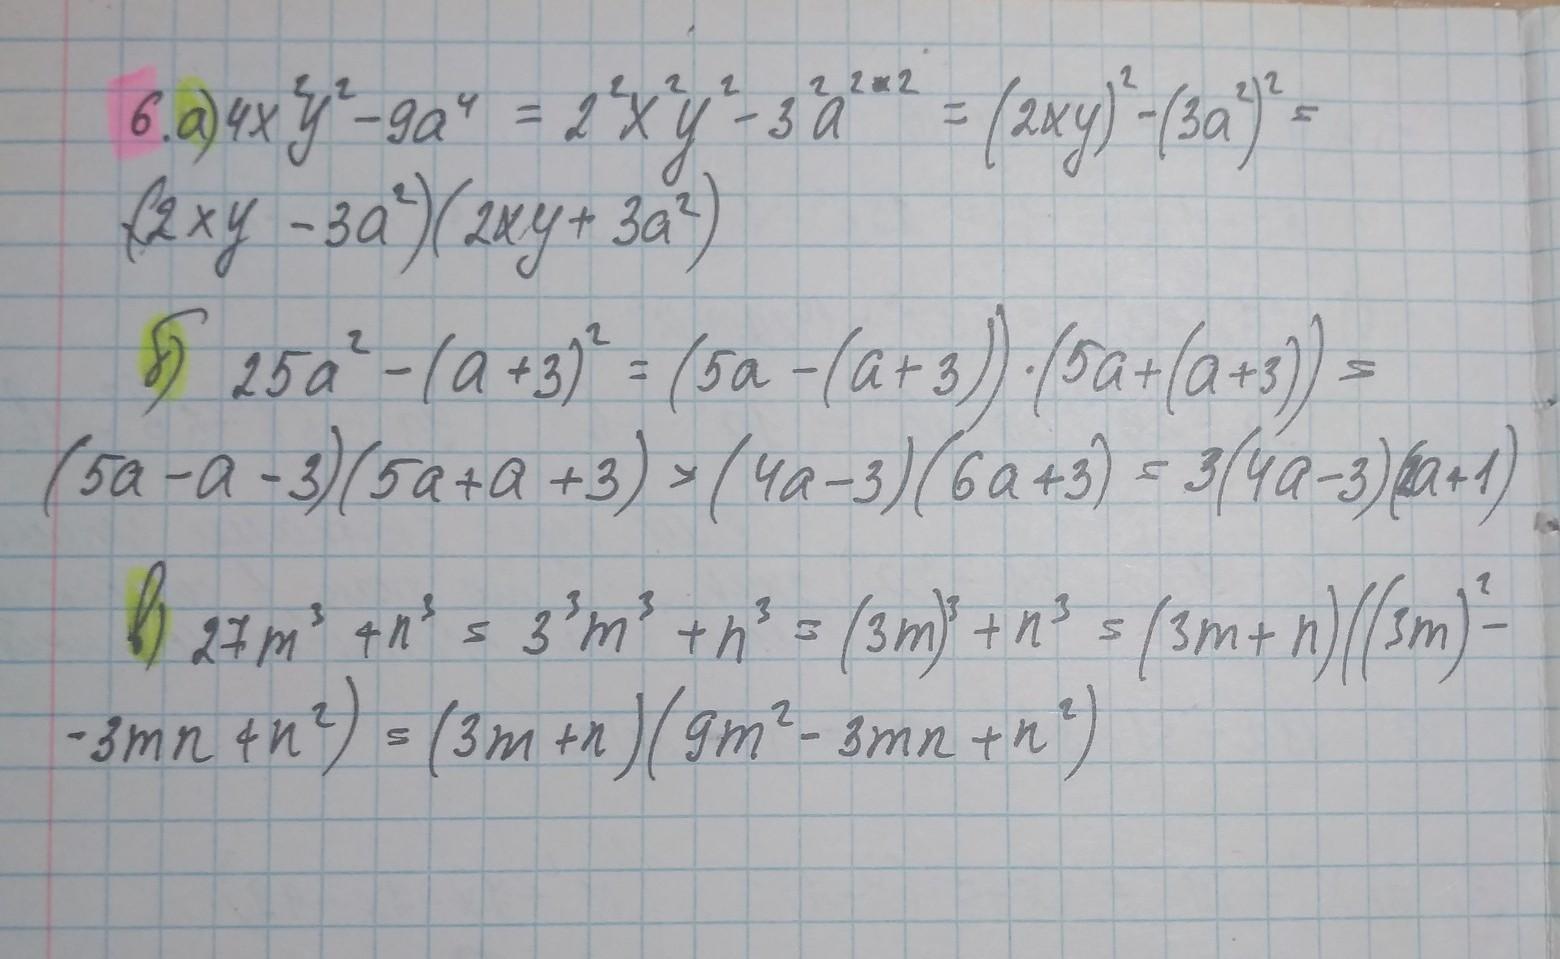 6.а) 4x²y² - 9a⁴ = 2²x²y² - 3²a²*² = (2xy)² - (3a²)² =
(2xy - 3a²)(2xy + 3a²)
б) 25a² - (a + 3)² = (5a - (a + 3))·(5a + (a + 3)) =
(5a - a - 3)(5a + a + 3) = (4a - 3)(6a + 3) = 3(4a - 3)(2a + 1)
в) 27m³ + n³ = 3³m³ + n³ = (3m)³ + n³ = (3m + n)((3m)² -
- 3mn + n²) = (3m + n)(9m² - 3mn + n²)